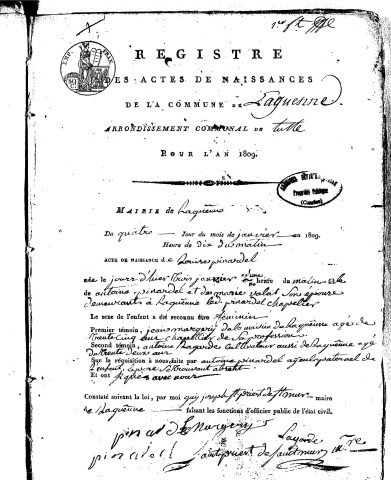 REGISTRE
DES ACTES DE NAISSANCES
DE LA COMMUNE DE Laguenne
ARRONDISSEMENT COMMUNAL DE tulle
POUR L'AN 1809.
MAIRIE de Laguenne
Du quatre Jour du mois de janvier an 1809.
Heure de dix du matin
ACTE DE NAISSANCE d. e Louise pinardel
née le jour d'hier trois janvier heure du matin fille
de antoine pinardel et de marie son épouse
demeurants à Laguenne pinardel chapelier
Le sexe de l'enfant a été reconnu être féminin
Premier témoin, jean margery de la mairie de Laguenne age de
trente cinq ans chapelier de sa profession
Second témoin, antoine Lagarde cultivateur aussi de Laguenne age
de trente deux ans
Sur la réquisition à nous faite par antoine pinardel ayeul paternel de
l'enfant, le père se trouvant absent
Et ont signés avec nous
Constaté suivant la loi, par moi guy joseph maire
de Laguenne faisant les fonctions d'officier public de l'état civil.
pinardel margery
Lagarde
pinardel